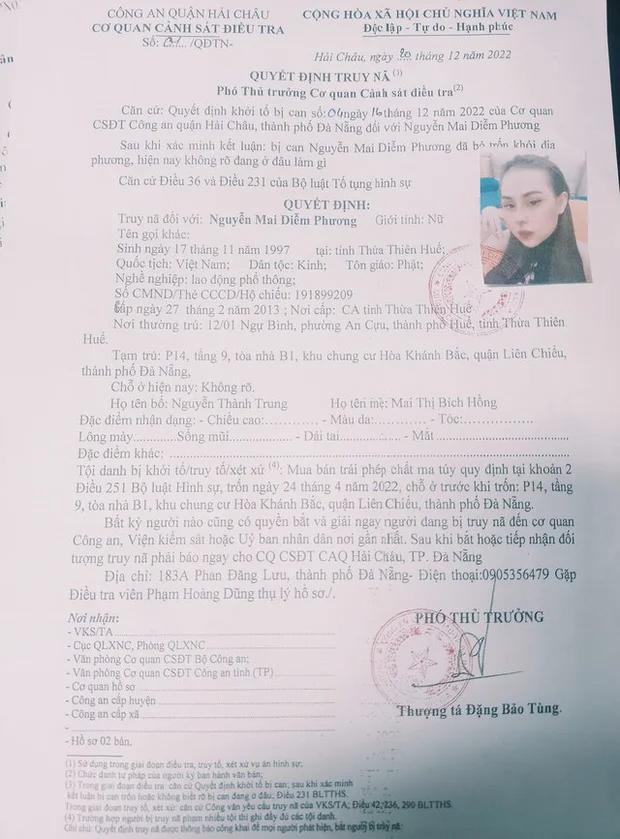 CÔNG AN QUẬN HẢI CHÂU
CƠ QUAN CẢNH SÁT ĐIỀU TRA
Số: /QĐTN-
CỘNG HÒA XÃ HỘI CHỦ NGHĨA VIỆT NAM
Độc lập - Tự do - Hạnh phúc
Hải Châu, ngày 20 tháng 12 năm 2022
QUYẾT ĐỊNH TRUY NÃ (1)
Phó Thủ trưởng Cơ quan Cảnh sát điều tra(2)
Căn cứ: Quyết định khởi tố bị can số:04 ngày 16 tháng 12 năm 2022 của Cơ quan
CSĐT Công an quận Hải Châu, thành phố Đà Nẵng đối với Nguyễn Mai Diễm Phương
Sau khi xác minh kết luận: bị can Nguyễn Mai Diễm Phương đã bỏ trốn khỏi địa
phương, hiện nay không rõ đang ở đâu làm gì
Căn cứ Điều 36 và Điều 231 của Bộ luật Tố tụng hình sự
QUYẾT ĐỊNH:
Truy nã đối với: Nguyễn Mai Diễm Phương Giới tính: Nữ
Tên gọi khác:
Sinh ngày 17 tháng 11 năm 1997 tại: tỉnh Thừa Thiên Huế;
Quốc tịch: Việt Nam; Dân tộc: Kinh; Tôn giáo: Phật;
Nghề nghiệp: lao động phổ thông;
Số CMND/Thẻ CCCD/Hộ chiếu: 191899209
Cấp ngày 27 tháng 2 năm 2013 ; Nơi cấp: CA tỉnh Thừa Thiên Huế
Nơi thường trú: 12/01 Ngự Bình, phường An Cựu, thành phố Huế, tỉnh Thừa Thiên
Huế.
Tạm trú: P14, tầng 9, tòa nhà B1, khu chung cư Hòa Khánh Bắc, quận Liên Chiểu,
thành phố Đà Nẵng,
Chỗ ở hiện nay: Không rõ.
Họ tên bố: Nguyễn Thành Trung Họ tên mẹ: Mai Thị Bích Hồng
Đặc điểm nhận dạng: - Chiều cao:............ - Màu da:............ - Tóc:................
Lông mày............Sống mũi.................. - Dái tai.................. - Mắt ..............................
Đặc điểm khác: ..................................................
Tội danh bị khởi tố/truy tố/xét xử (4): Mua bán trái phép chất ma túy quy định tại khoản 2
Điều 251 Bộ luật Hình sự, trốn ngày 24 tháng 4 năm 2022, chỗ ở trước khi trốn: P14, tầng
9, tòa nhà B1, khu chung cư Hòa Khánh Bắc, quận Liên Chiểu, thành phố Đà Nẵng.
Bất kỳ người nào cũng có quyền bắt và giải ngay người đang bị truy nã đến cơ quan
Công an, Viện kiểm sát hoặc Uỷ ban nhân dân nơi gần nhất. Sau khi bắt hoặc tiếp nhận đối
tượng truy nã phải báo ngay cho CQ CSĐT CAQ Hải Châu, TP. Đà Nẵng
Địa chỉ: 183A Phan Đăng Lưu, thành phố Đà Nẵng- Điện thoại:0905356479 Gặp
Điều tra viên Phạm Hoàng Dũng thụ lý hồ sơ./.
Nơi nhận:
- VKS/TA
- Cục QLXNC, Phòng QLXNC
- Văn phòng Cơ quan CSĐT Bộ Công an;
- Văn phòng Cơ quan CSĐT Công an tỉnh (TP)
- Cơ quan hồ sơ
- Công an cấp huyện
- Công an cấp xã
-
- Hồ sơ 02 bản.
PHÓ THỦ TRƯỞNG
Thượng tá Đặng Bảo Tùng.
(1) Sử dụng trong giai đoạn điều tra, truy tố, xét xử vụ án hình sự;
(2) Chức danh tư pháp của người ký ban hành văn bản;
(3) Trong giai đoạn điều tra: căn cứ Quyết định khởi tố bị can, sau khi xác minh
kết luận bị can trốn hoặc không biết rõ bị can đang ở đâu; Điều 231 BLTTHS.
Trong giai đoạn truy tố, xét xử: căn cứ Công văn yêu cầu truy nã của VKS/TA; Điều 42, 236, 290 BLTTHS.
(4) Trường hợp người bị truy nã phạm nhiều tội thì ghi đầy đủ các tội danh.
Ghi chú: Quyết định truy nã được thông báo công khai để mọi người phát hiện, bắt người bị truy nã.